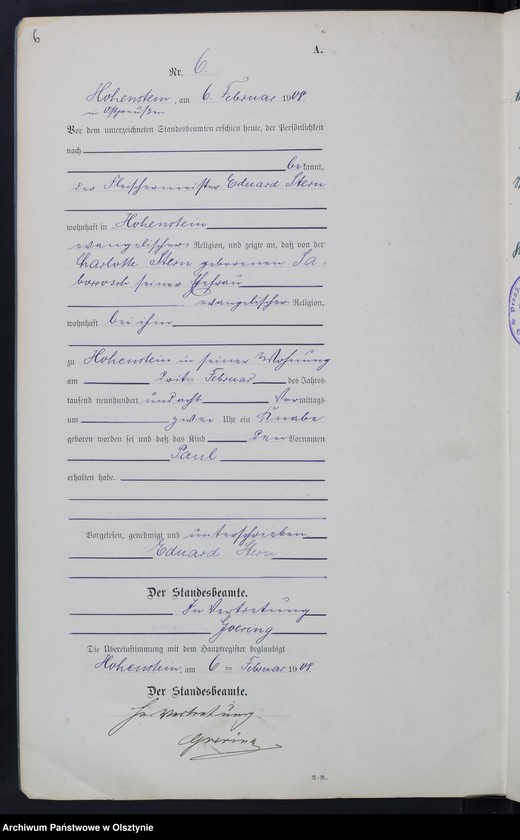 6
A.
Nr. 6.
Hohenstein, am 6. Februar 1908.
in Ostpreußen
Vor dem unterzeichneten Standesbeamten erschien heute, der Persönlichkeit
nach
bekannt,
der Fleischermeister Eduard Stern
wohnhaft in Hohenstein
evangelischer Religion, und zeigte an, daß von der
Charlotte Stern geborenen Sa-
borrosch seiner Ehefrau
evangelischer Religion,
wohnhaft bei ihm
zu Hohenstein in seiner Wohnung
am Februar des Jahres
tausend neunhundert und acht Vormittags
um zwei Uhr ein Knabe
geboren worden sei und daß das Kind den Vornamen
Paul
erhalten habe.
Vorgelesen, genehmigt und unterschrieben
Eduard Stern
Der Standesbeamte.
In Vertretung
Goering
Die Übereinstimmung mit dem Hauptregister beglaubigt
Hohenstein, am 6 ten Februar 1908.
Der Standesbeamte.
In Vertretung
Goering
Archiwum Państwowe w Olsztynie